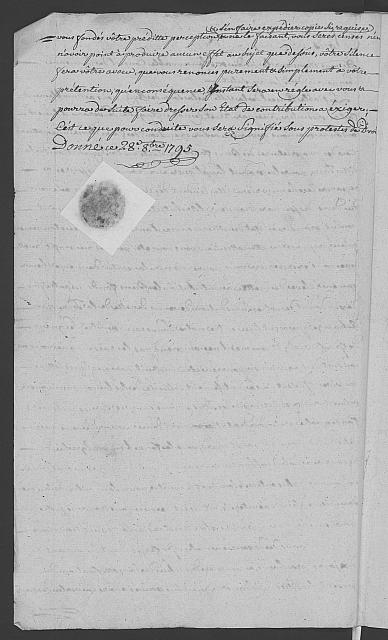 & s'en faire expédier copie si requiser
vous fondés votre préditte perception & en ne le faisant, vous serés censés n'en
n'avoir point à produire aucun effet au sujet que dessus, votre silence
sera votre aveu, que vous renoncés purement & simplement à votre
prétention, qu'en conséquence l'instant sera en regle avec vous &
pourra de suite faire dresser son Etat de contribution à exiger,
C'est ce que pour conduite vous sera signifié sous protestes de Droit
Donné ce 28.e 8.bre 1795